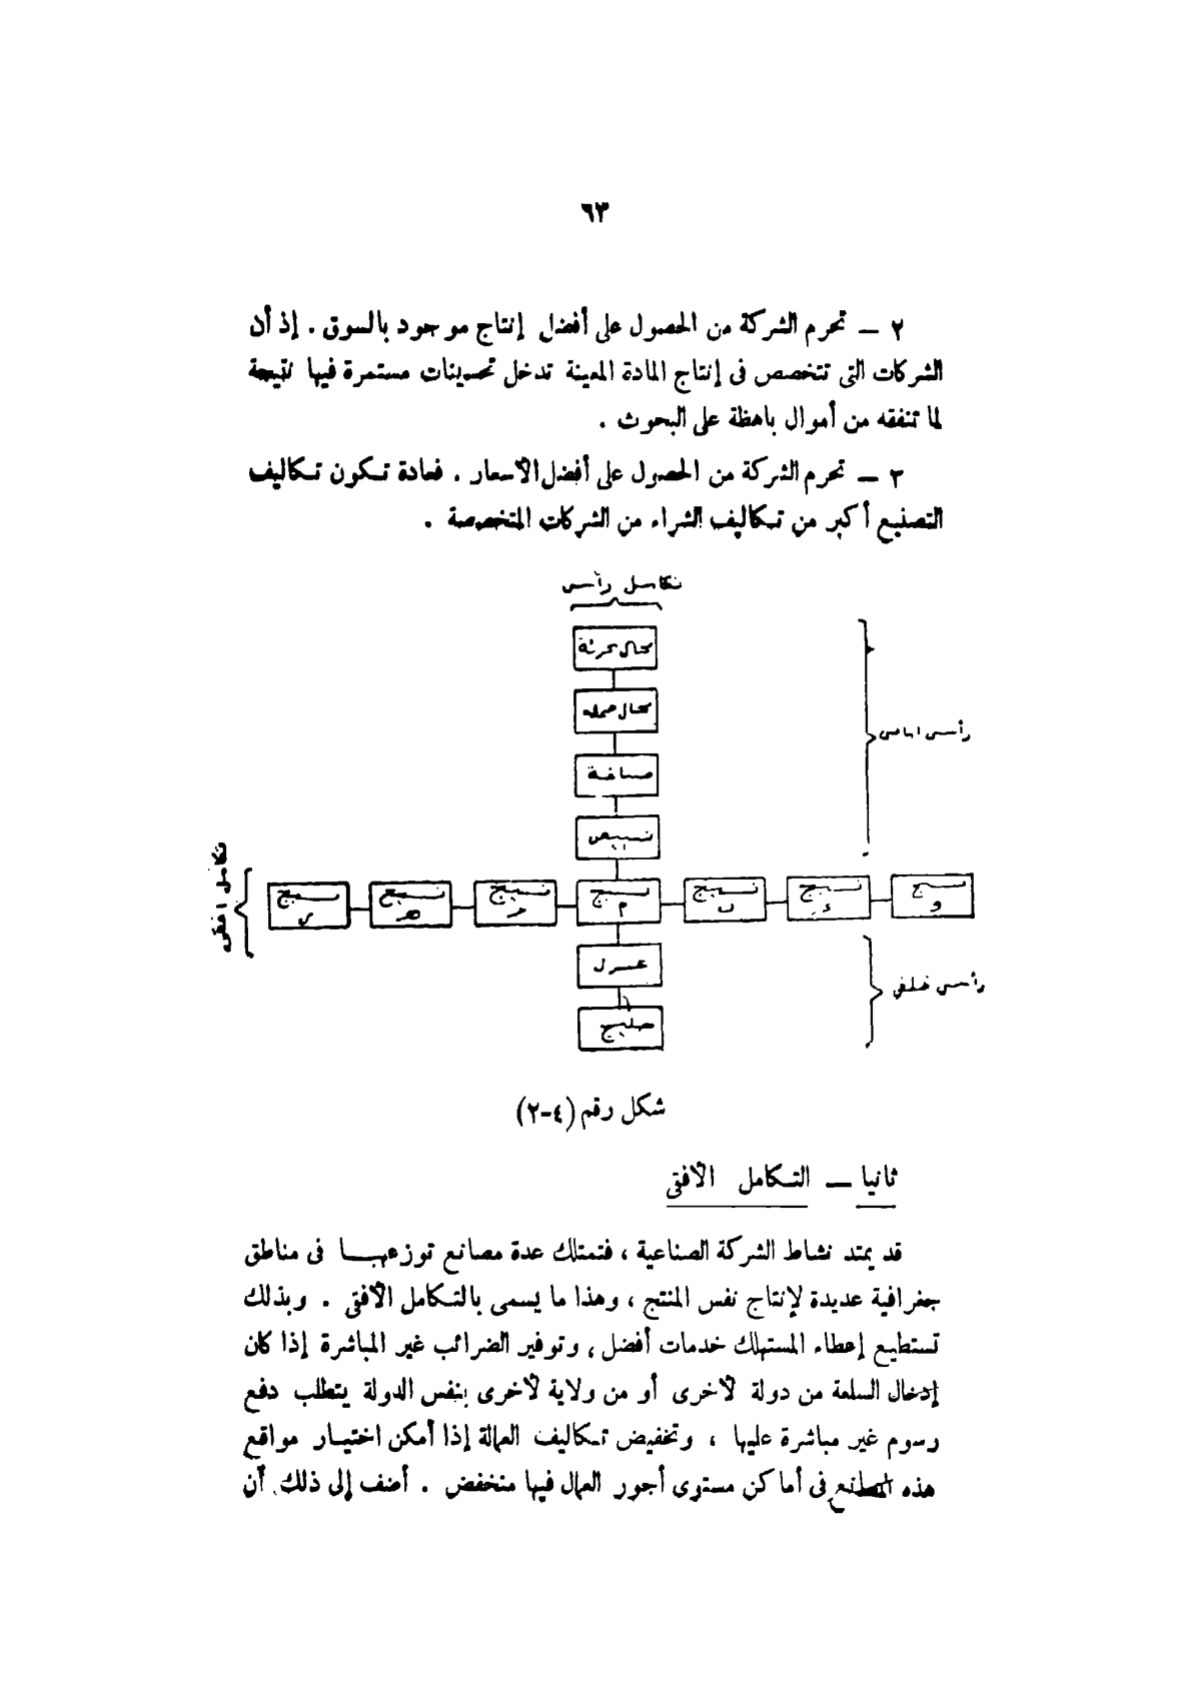 ٦٣
٢ — تحرم الشركة من الحصول على أفضل إنتاج موجود بالسوق . إذ أن
الشركات التى تتخصص فى إنتاج المادة المعينة تدخل تحسينات مستمرة فيها نتيجة
لما تنفقه من أموال باهظة على البحوث .
٣ — تحرم الشركة من الحصول على أفضل الأسعار . فعادة تكون تكاليف
التصنيع أكبر من تكاليف الشراء من الشركات المتخصصة .
تكامل رأسى
محال تجزئة
محال جملة
صباغة
تبييض
رأسى امامى
تكامل افقى
نسيج
نسيج هـ
نسيج
نسيج م
نسيج ب
نسيج
نسيج و
غزل
حليج
رأسى خلفي
شكل رقم (٤-٢)
ثانيا — التكامل الأفقى
قد يمتد نشاط الشركة الصناعية ، فتمتلك عدة مصانع توزعها فى مناطق
جغرافية عديدة لإنتاج نفس المنتج ، وهذا ما يسمى بالتكامل الأفقى . وبذلك
تستطيع إعطاء المستهلك خدمات أفضل ، وتوفير الضرائب غير المباشرة إذا كان
إدخال السلعة من دولة لأخرى أو من ولاية لأخرى بنفس الدولة يتطلب دفع
رسوم غير مباشرة عليها ، وتخفيض تكاليف العمالة إذا أمكن اختيار مواقع
هذه المصانع فى أماكن مستوى أجور العمال فيها منخفض . أضف إلى ذلك أن